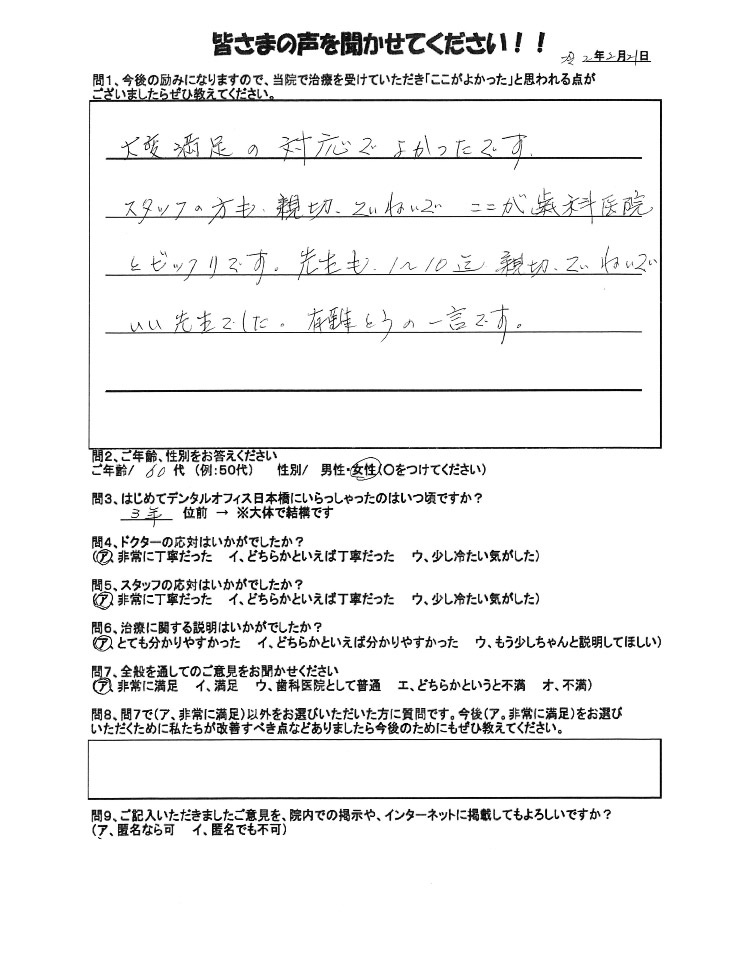 皆さまの声を聞かせてください！！
2年2月21日
問1、今後の励みになりますので、当院で治療を受けていただき「ここがよかった」と思われる点が
ございましたらぜひ教えてください。
大変満足の対応でよかったです。
スタッフの方も、親切、ていねいで ここが歯科医院
とビックリです。先生も、1〜10迄、親切、ていねいで
いい先生でした。有難とうの一言です。
問2、ご年齢、性別をお答えください
ご年齢/ 60 代 (例:50代) 性別/ 男性・女性(〇をつけてください)
問3、はじめてデンタルオフィス日本橋にいらっしゃったのはいつ頃ですか？
3年 位前 → ※大体で結構です
問4、ドクターの応対はいかがでしたか？
(ア、非常に丁寧だった イ、どちらかといえば丁寧だった ウ、少し冷たい気がした)
問5、スタッフの応対はいかがでしたか？
(ア、非常に丁寧だった イ、どちらかといえば丁寧だった ウ、少し冷たい気がした)
問6、治療に関する説明はいかがでしたか？
(ア、とても分かりやすかった イ、どちらかといえば分かりやすかった ウ、もう少しちゃんと説明してほしい)
問7、全般を通してのご意見をお聞かせください
(ア、非常に満足 イ、満足 ウ、歯科医院として普通 エ、どちらかというと不満 オ、不満)
問8、問7で(ア、非常に満足)以外をお選びいただいた方に質問です。今後(ア。非常に満足)をお選び
いただくために私たちが改善すべき点などありましたら今後のためにもぜひ教えてください。
問9、ご記入いただきましたご意見を、院内での掲示や、インターネットに掲載してもよろしいですか？
(ア、匿名なら可 イ、匿名でも不可)